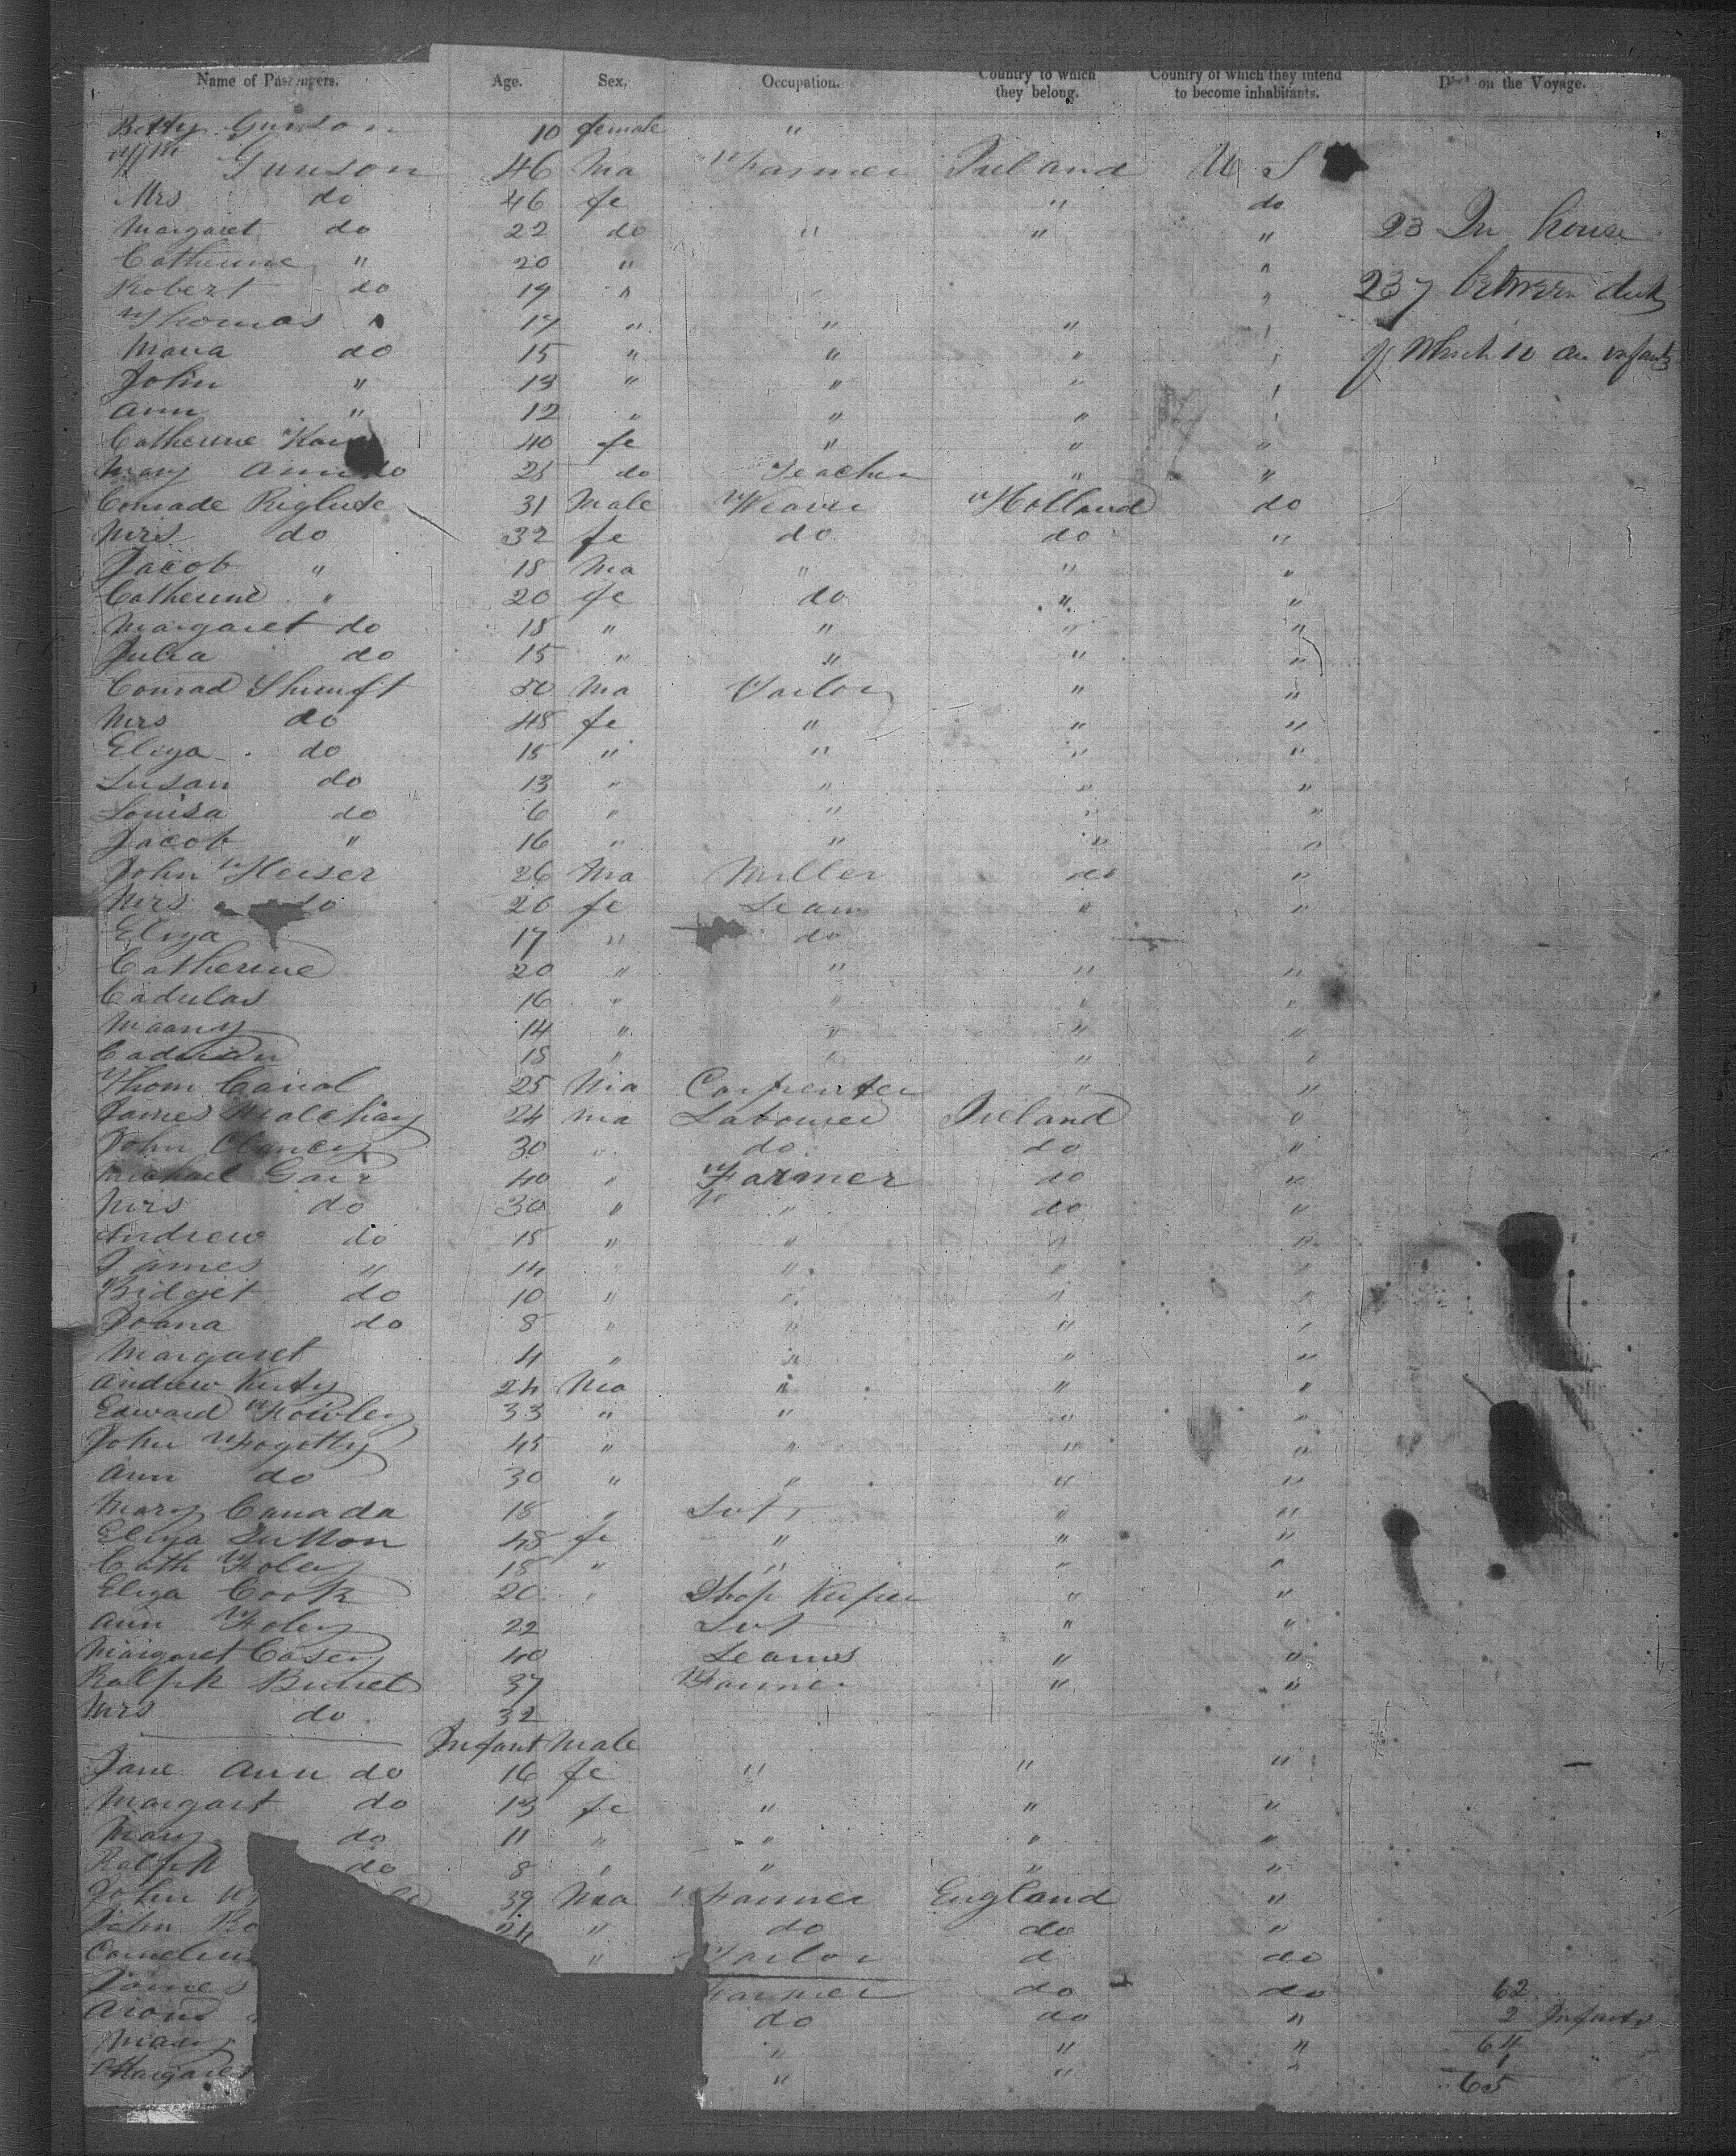 Name of Passengers. Age. Sex. Occupation. Country to which they belong. Country of which they intend to become inhabitants. Died on the Voyage.
Betty Gunson 10 female "
Wm Gunson 46 Ma Farmer Ireland U S
Mrs do 46 fe " do
Margaret do 22 do " " " 23 In house
Catherine " 20 " "
Robert do 19 " " " 237 between decks
Thomas " 17 " " " "
Maria do 15 " " " " of which 10 are infants
John " 13 " " " "
Ann " 12 " " " "
Catherine 40 fe " " "
Mary Ann do 28 do Teacher " "
Conrade Riglute 31 Male Weaver Holland do
Mrs do 32 fe do do "
Jacob " 18 Ma " " "
Catherine " 20 fe do " "
Margaret do 18 " " " "
Julia do 15 " " " "
Conrad Shunft 50 Ma Tailor " "
Mrs do 48 fe " " "
Eliza do 15 " " " "
Susan do 13 " " " "
Louisa do 6 " " " "
Jacob " 16 " " " "
John Heiser 26 Ma Miller do "
Mrs do 26 fe Seam " "
Eliza 17 " do
Catherine 20 " " " "
Cadulas 16 " " " "
Maany 14 " " " "
18 " " " "
Thom Canal 25 Ma Carpenter " "
James 24 Ma Labourer Ireland "
John Clancy 30 " do do "
Michael Gair 40 " Farmer do "
Mrs do 30 " " do "
Andrew do 18 " " " "
James " 14 " " " "
Bridget do 10 " " " "
Joana do 8 " " " "
Margaret 4 " " " "
Andrew Kirty 24 Ma " " "
Edward Howley 33 " " " "
John Fogitty 45 " " " "
Ann do 30 " " " "
Mary Canada 18 " Svt " "
Eliza Sutton 48 fe " " "
Cath Foley 18 " " " "
Eliza Cook 20 " Shop Keeper " "
Ann Foley 22 Svt " "
Margaret Casey 40 Seams " "
Ralph Burnet 37 Farmer " "
Mrs do 32
Infant Male
Jane Ann do 16 fe " " "
Margart do 13 fe " " "
Mary do 11 " " " "
Ralph do 8 " " " "
John 39 Ma Farmer England "
John Bo 24 " do do "
Cornelius " Tailor d do
James Farmer do do 62
do do " 2 Infants
Mary " " " 64
Margaret " " " 1
65